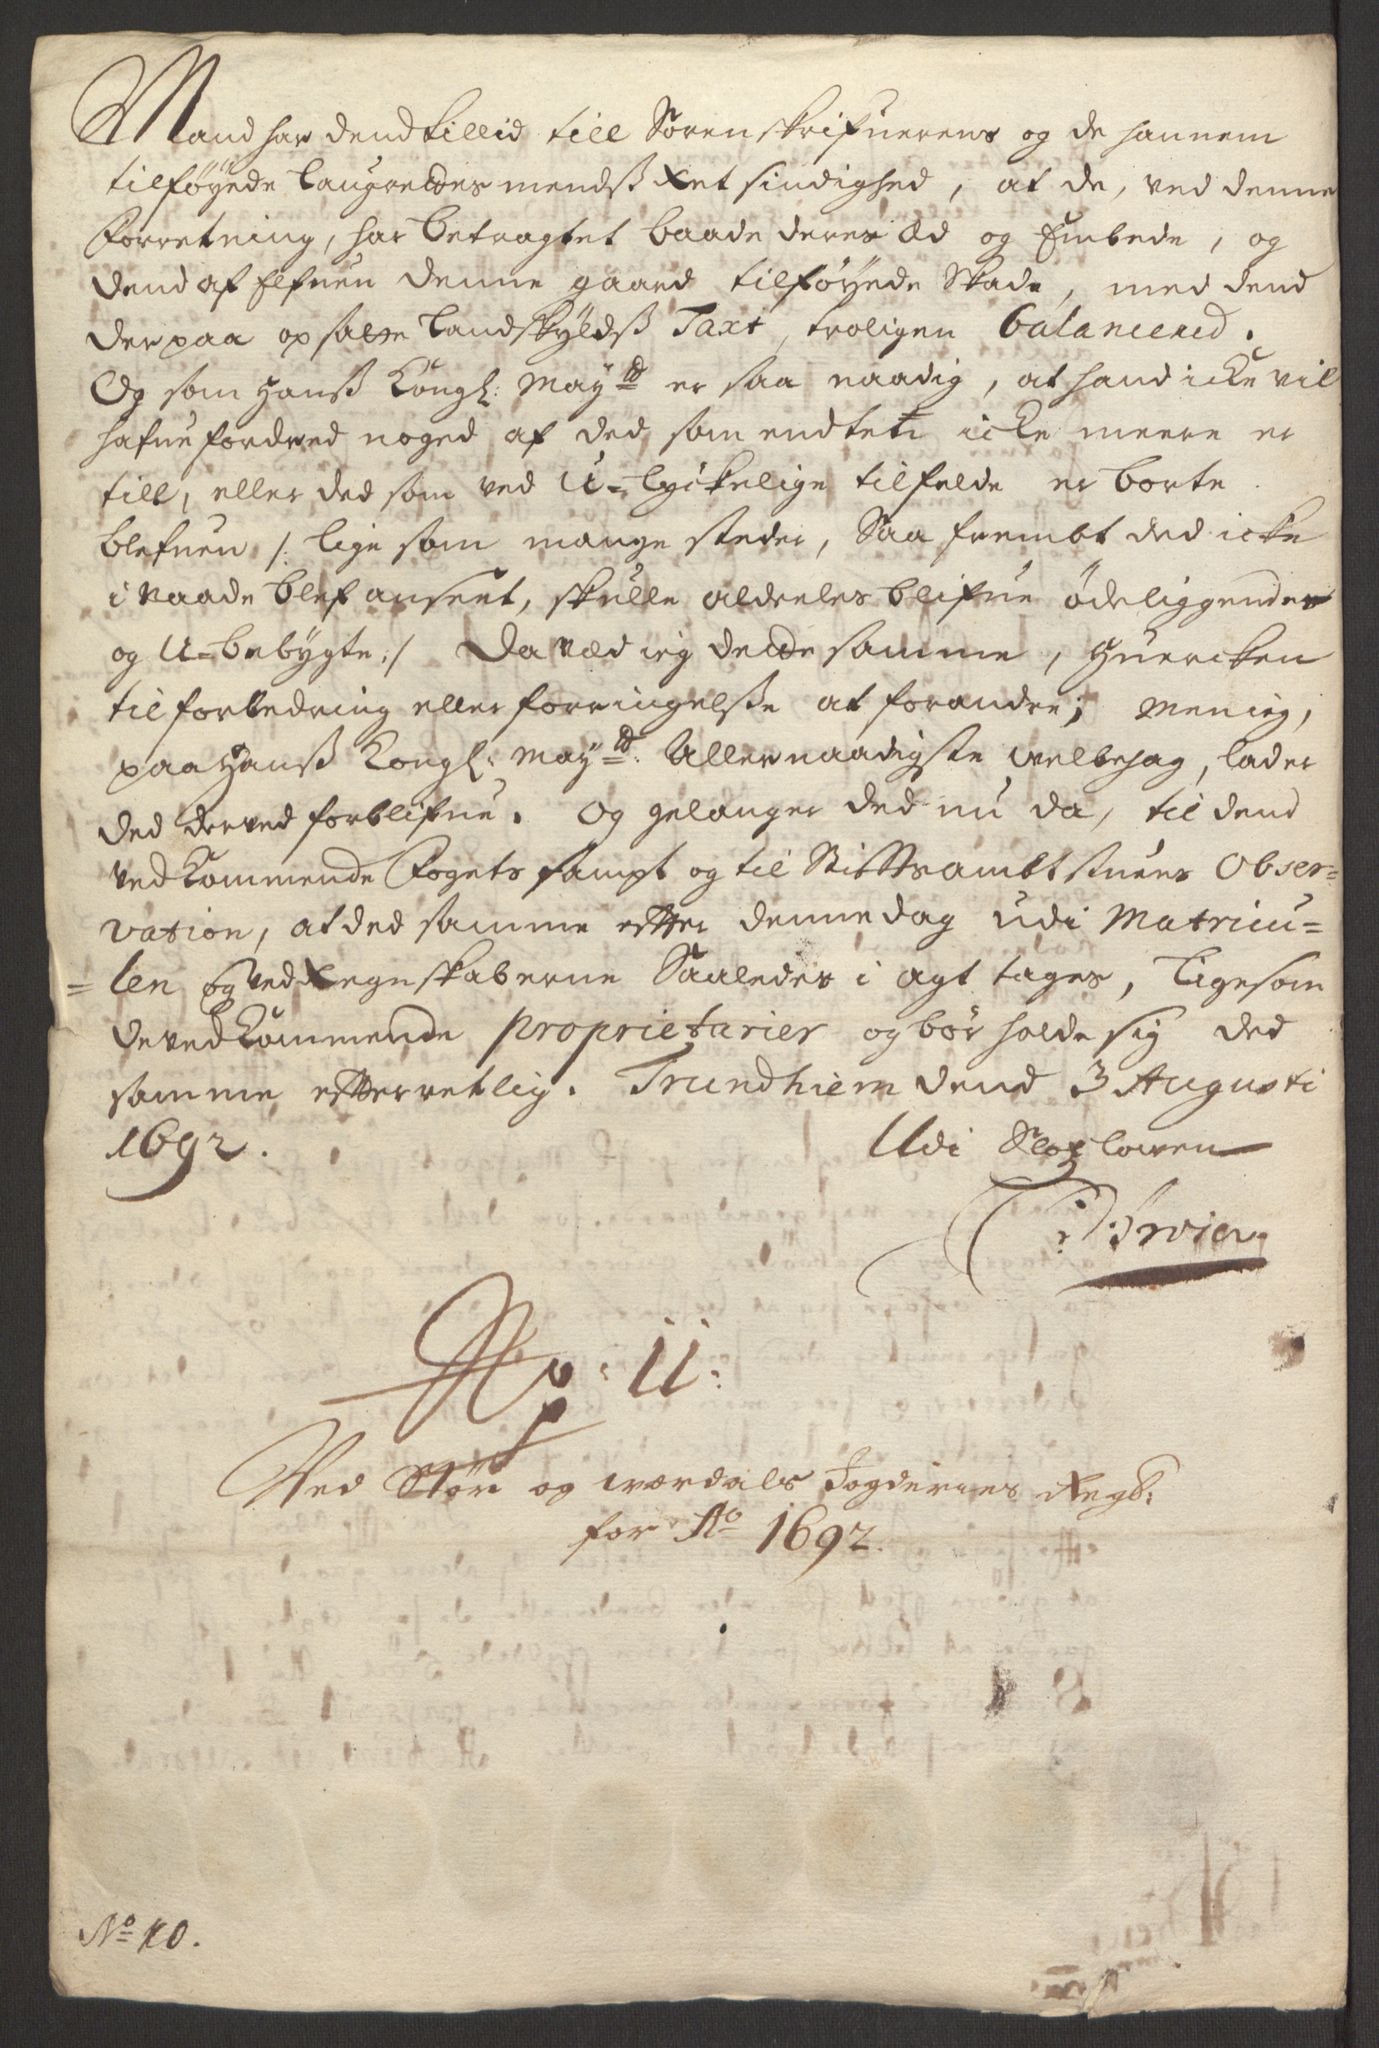 Mand har dend tillid till Sorenskrifuerens og de hannem
tilføyede Laugrettes mendsß Ret sindighed, at de, ved denne
Forretning, har betragtet baade deres Æd og Embede, og
dend af Elfuen denne gaard tilføyede Skade, med dend
der paa opsatte Landskyldsß Taxt, troligen balancered.
Og som Hansß Kongl: May:tt er saa naadig, at hand icke vil
hafue fordred noged af ded som endten icke meere er
till, eller ded som ved U-lyckelige tilfelde er borte
blefuen /: lige som mange steder, Saa frembt ded icke
i Naade blef anseet, skulle aldeeles blifue ödeliggendes
og U-bebygte :/ Da ved ieg dette samme, Huercken
til forbedring eller forringelsße at forandre; Men ieg,
paa Hansß Kongl: May:tt: Allernaadigste welbehag, lader
ded derved forblifue. Og gelanger ded nu da, til dend
ved Kommende Fogets sampt og til Stifftsambtstuens Obser-
vation, at ded samme effter denne dag udi Matricu-
-len og ved Regnskaberne Saaledes i agt tages, Ligesom
de vedkommende proprietarier og bør holde sig ded
samme effterretlig. Trundhiem dend 3 Augusti
1692. Udi Slotzlowen

No: 11:
Ved Stør og Værdals Fogderies Regsk:
for Ao 1692.
No 10.